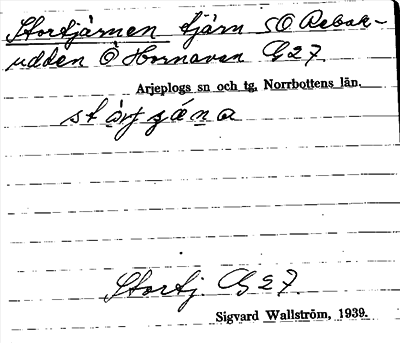 Stortjärnen tjärn SO Rebak-
udden Ö Hornavan G 27
Arjeplogs sn och tg, Norrbottens län.
Stortj. G 27
Sigvard Wallström, 1939.